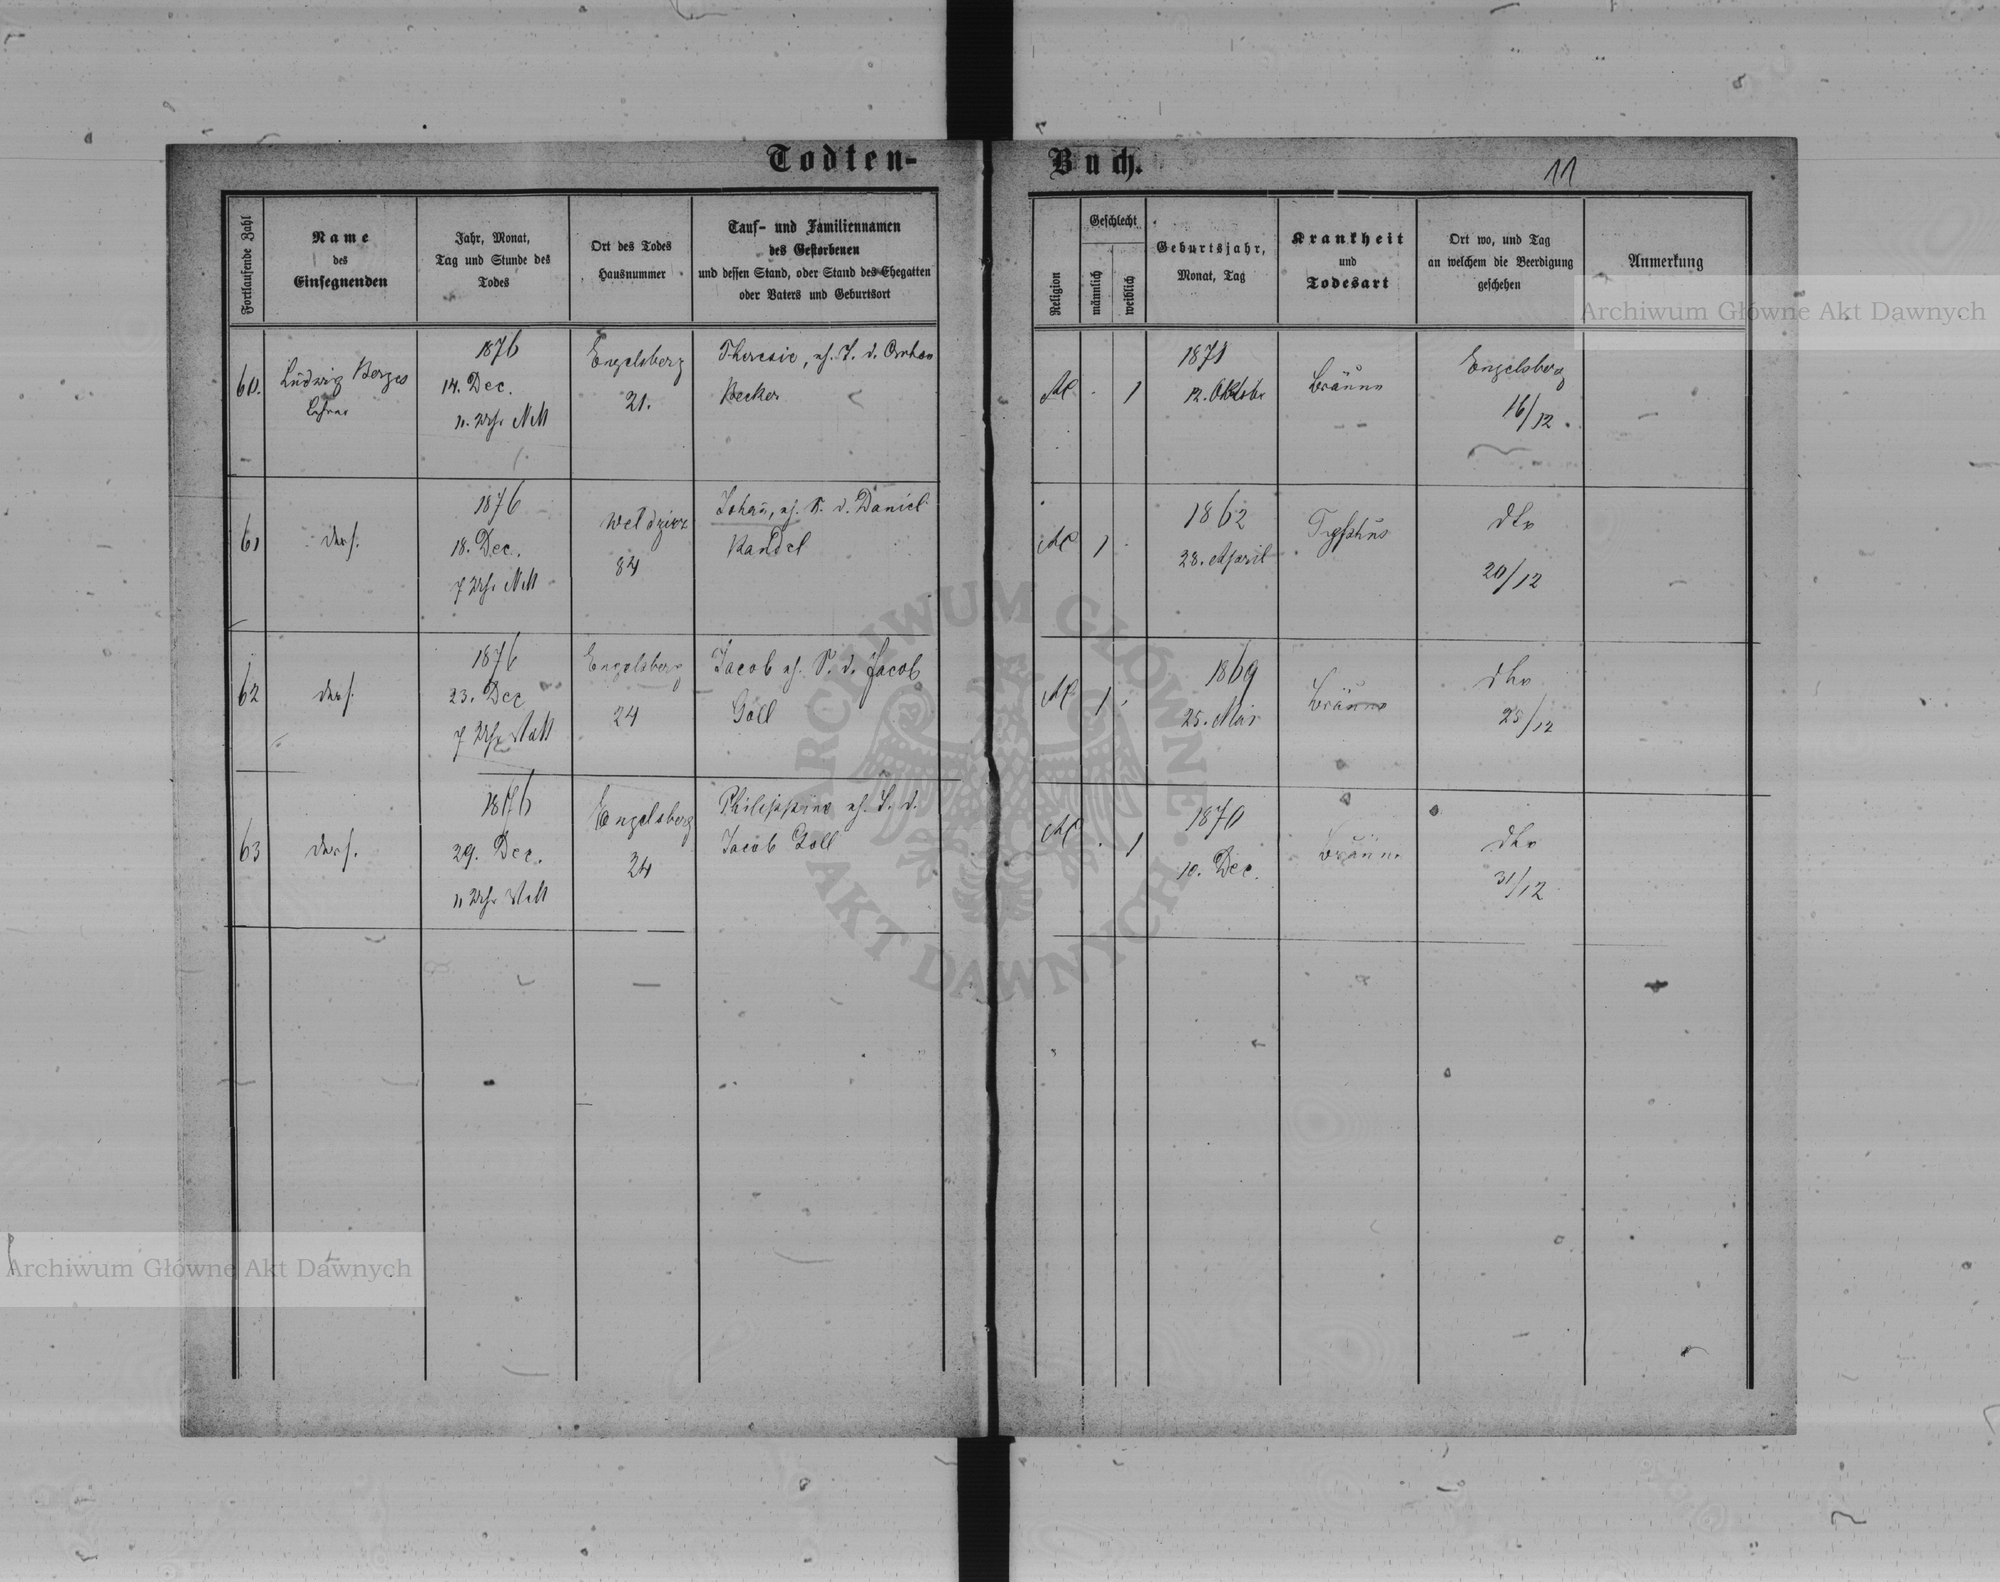 Todten-Buch.
11
Fortlaufende Zahl
Name
des
Einsegnenden
Jahr, Monat,
Tag und Stunde des
Todes
Ort des Todes
Hausnummer
Tauf- und Familiennamen
des Gestorbenen
und dessen Stand, oder Stand des Ehegatten
oder Vaters und Geburtsort
Religion
Geschlecht
männlich
weiblich
Geburtsjahr,
Monat, Tag
Krankheit
und
Todesart
Ort wo, und Tag
an welchem die Beerdigung
geschehen
Anmerkung
60.
Ludwig Berges
Lehrer
1876
14. Dec.
11. Uhr NM
Engelsberg
21.
Theresie, eh. T. d.
Becker
1
1871
12. Oktober
Bräune
Engelsberg
16/12.
61
ders.
1876
18. Dec.
7 Uhr NM
Weldzirz
84
Johañ, eh. S. d. Daniel
Kandel
1
1862
28. April
Typhus
dto
20/12
62
ders.
1876
23. Dec
7 Uhr
Engelsberg
24
Jacob eh. S. d. Jacob
Goll
1
1869
25.
Bräune
dto
25/12
63
ders.
1876
29. Dec.
11 Uhr
Engelsberg
24
Philippine eh. T. d.
Jacob Goll
1
1870
10. Dec.
Bräune
dto
31/12
Archiwum Główne Akt Dawnych
Archiwum Główne Akt Dawnych
ARCHIWUM GŁÓWNE AKT DAWNYCH